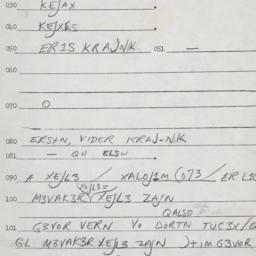 030 KEJAX
040 KEJXES
050 ERIS KRAJNIK 051 —
060
070 O
080 ERSTN, VIDER KRAJNIK
081 — QH ELSW
090 A XEJL3 / XALOJ1M (073/ ER L1
XEJL3=
100 M3VAK3R XEJL3 ZAJN
QALSO
101 G3VOR VERN VO DORTN TUC3X/
GL M3VAK3R XEJL3 ZAJN )+IM G3VOR